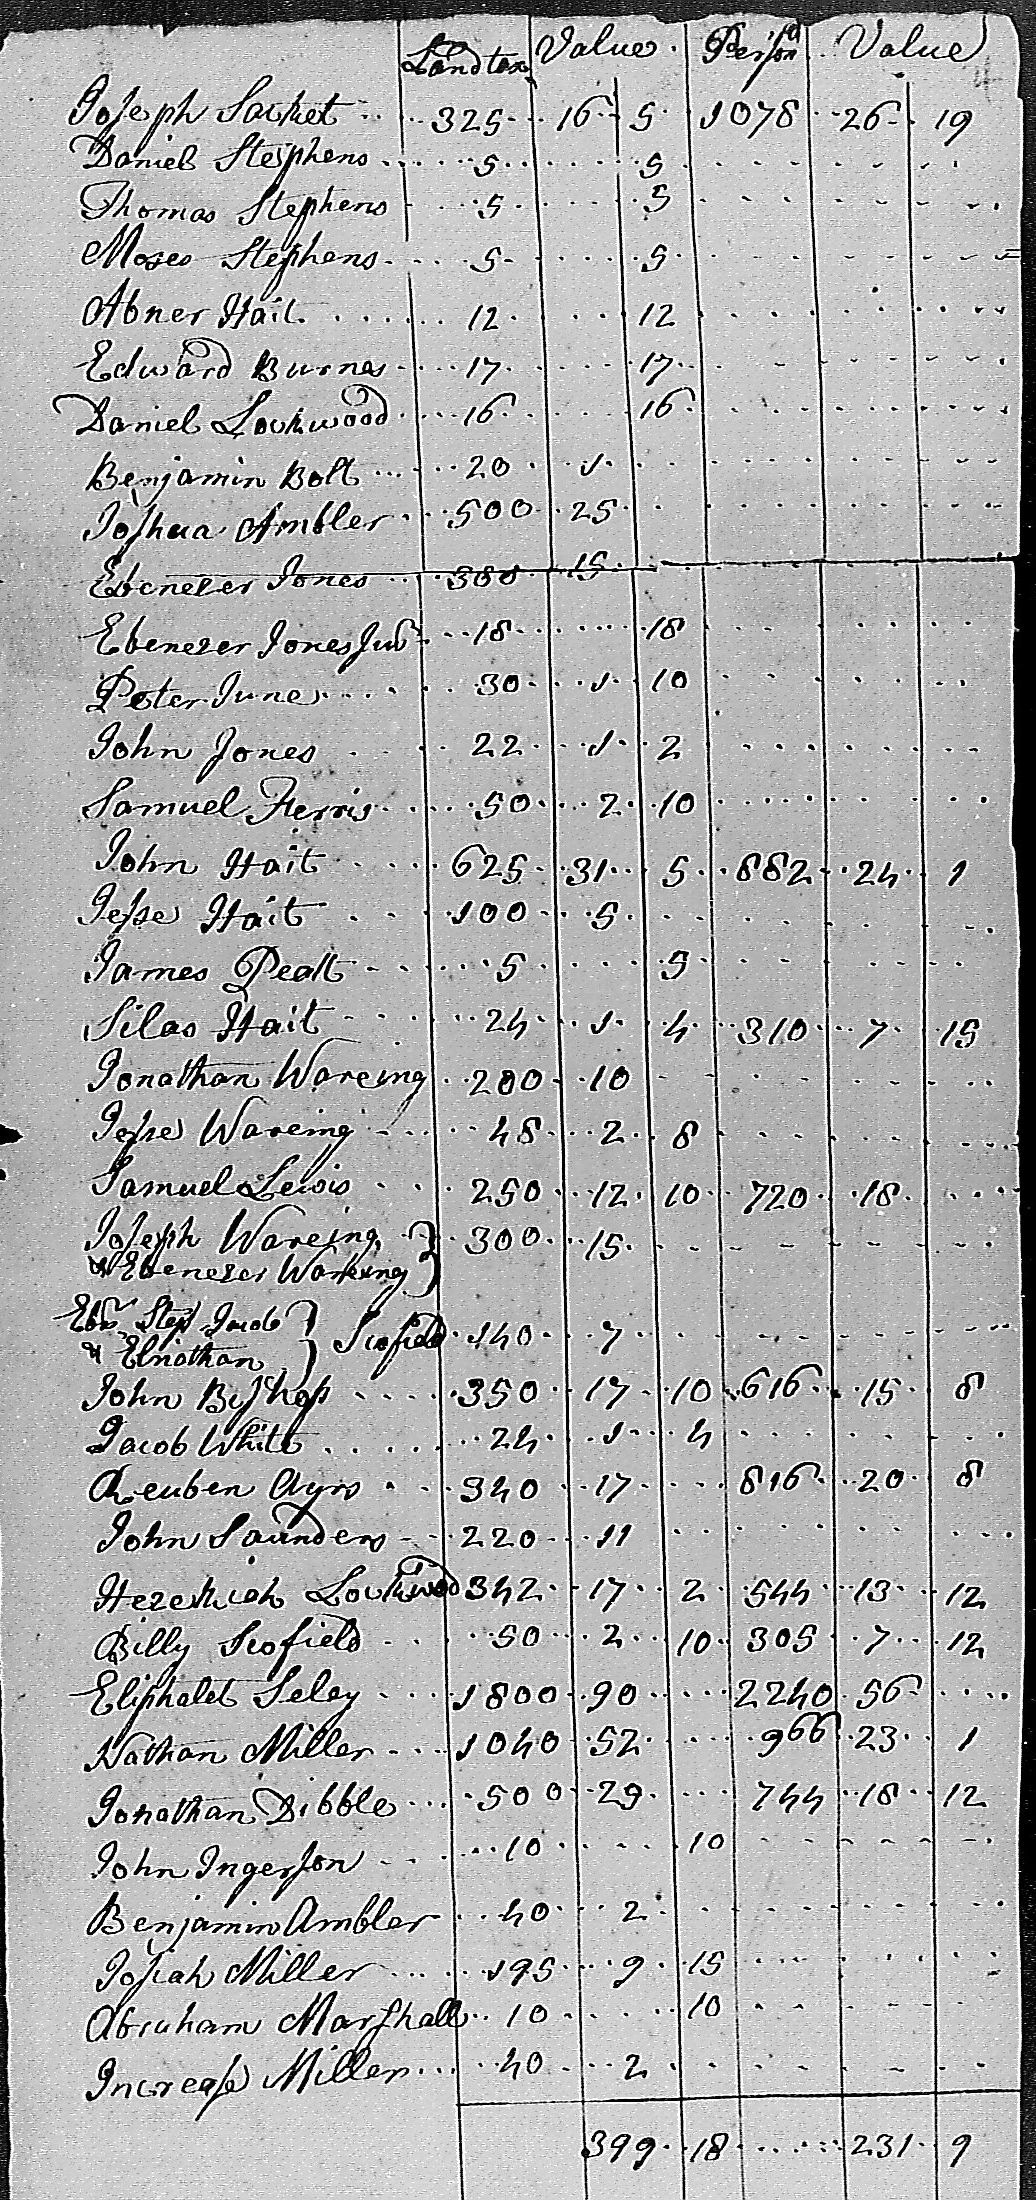 Landtax Value Person¹ Value
Joseph Sacket 325 16 5 1078 26 19
Daniel Stephens 5 5
Thomas Stephens 5 5
Moses Stephens 5 5
Abner Hait 12 12
Edward Burnes 17 17
Daniel Lockwood 16 16
Benjamin Bolt 20 1
Joshua Ambler 500 25
Ebenezer Jones 300 15
Ebenezer Jones Junr 18 18
Peter June 30 1 10
John Jones 22 1 2
Samuel Ferris 50 2 10
John Hait 625 31 5 882 24 1
Jesse Hait 100 5
James Peatt 5 5
Silas Hait 24 1 4 310 7 15
Jonathan Wareing 200 10
Jesse Wareing 48 2 8
Samuel Lewis 250 12 10 720 18
Joseph Wareing 300 15
& Ebenezer Wareing
Ebr Step Jacob Scofield 140 7
& Elnathan
John Bishop 350 17 10 616 15 8
Jacob White 24 1 4
Reuben Ayrs 340 17 816 20 8
John Saunders 220 11
Hezekiah Lockwood 342 17 2 544 13 12
Billy Scofield 50 2 10 305 7 12
Eliphalet Seley 1800 90 2240 56
Nathan Miller 1040 52 966 23 1
Jonathan Dibble 500 29 744 18 12
John Ingerson 10 10
Benjamin Ambler 40 2
Josiah Miller 195 9 15
Abraham Marshall 10 10
Increase Miller 40 2
399 18 231 9